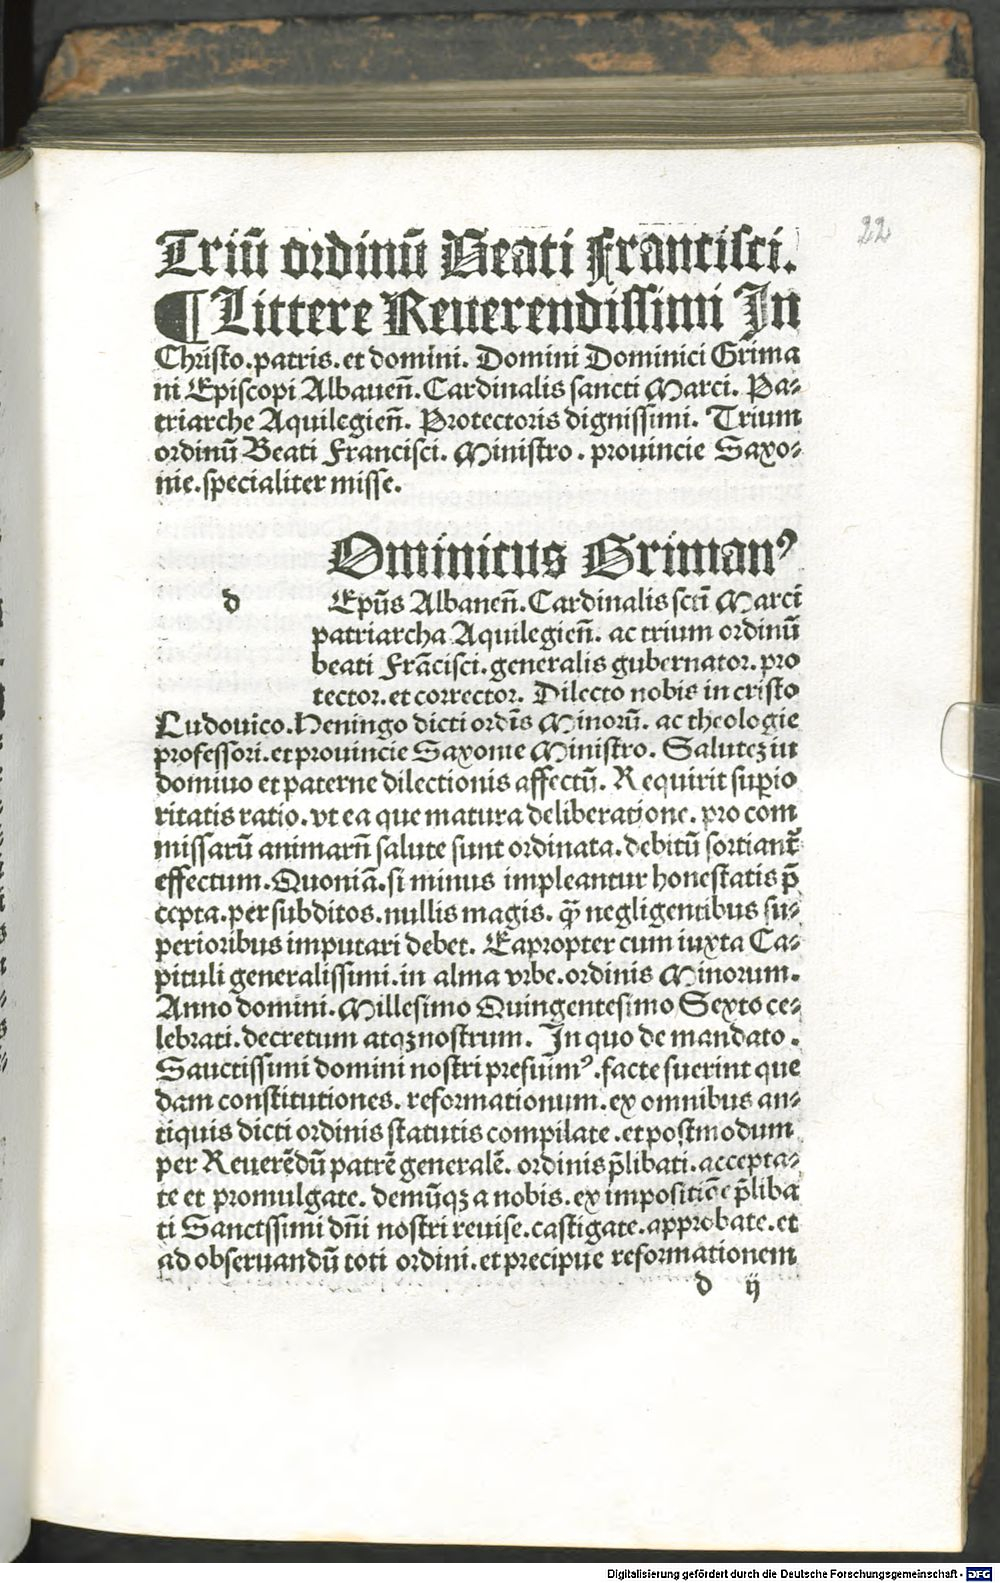 22
Triū ordinū Beati Francisci.
¶ Littere Reuerendissimi In
Christo.patris.et domini. Domini Dominici Grima
ni Episcopi Albaueñ.Cardinalis sancti Marci. Pa⸗
triarche Aquilegieñ. Protectoris dignissimi. Trium
ordinū Beati Francisci. Ministro. prouincie Saxo⸗
nie.specialiter misse.
Ominicus Grimanꝰ
d Epūs Albaneñ.Cardinalis sctī Marci
patriarcha Aquilegieñ. ac trium ordinū
beati Frācisci.generalis gubernator.pro
tector.et corrector. Dilecto nobis in cristo
Ludouico.Heningo dicti ordīs Minorū. ac theologie
professori.et prouincie Saxonie Ministro. Saluteꝫ in
domiuo et paterne dilectionis affectū. Requirit suꝑio
ritatis ratio. vt ea que matura deliberatione. pro com
missarū animarū salute sunt ordinata.debitū sortiant᷑
effectum.Quoniā.si minus impleantur honestatis p̄
cepta.per subditos.nullis magis. q̄ negligentibus su⸗
perioribus imputari debet. Eapropter cum iuxta Ca⸗
pituli generalissimi.in alma vrbe.ordinis Minorum.
Anno domini.Millesimo Quingentesimo Sexto ce⸗
lebrati.decretum atqꝫ nostrum. In quo de mandato.
Sauctissimi domini nostri presuīmꝰ.facte fuerint que
dam constitutiones. reformationum.ex omnibus an⸗
tiquis dicti ordinis statutis compilate.et postmodum
per Reuerēdū patrē generalē. ordinis p̄libati.accepta⸗
te et promulgate. demūqꝫ a nobis.ex impositiōe p̄liba
ti Sanctssimi dñi nostri reuise.castigate.approbate.et
ad obseruandū toti ordini.et precipue reformationem
d ij
Digitalisierung gefördert durch die Deutsche Forschungsgemeinschaft - DFG